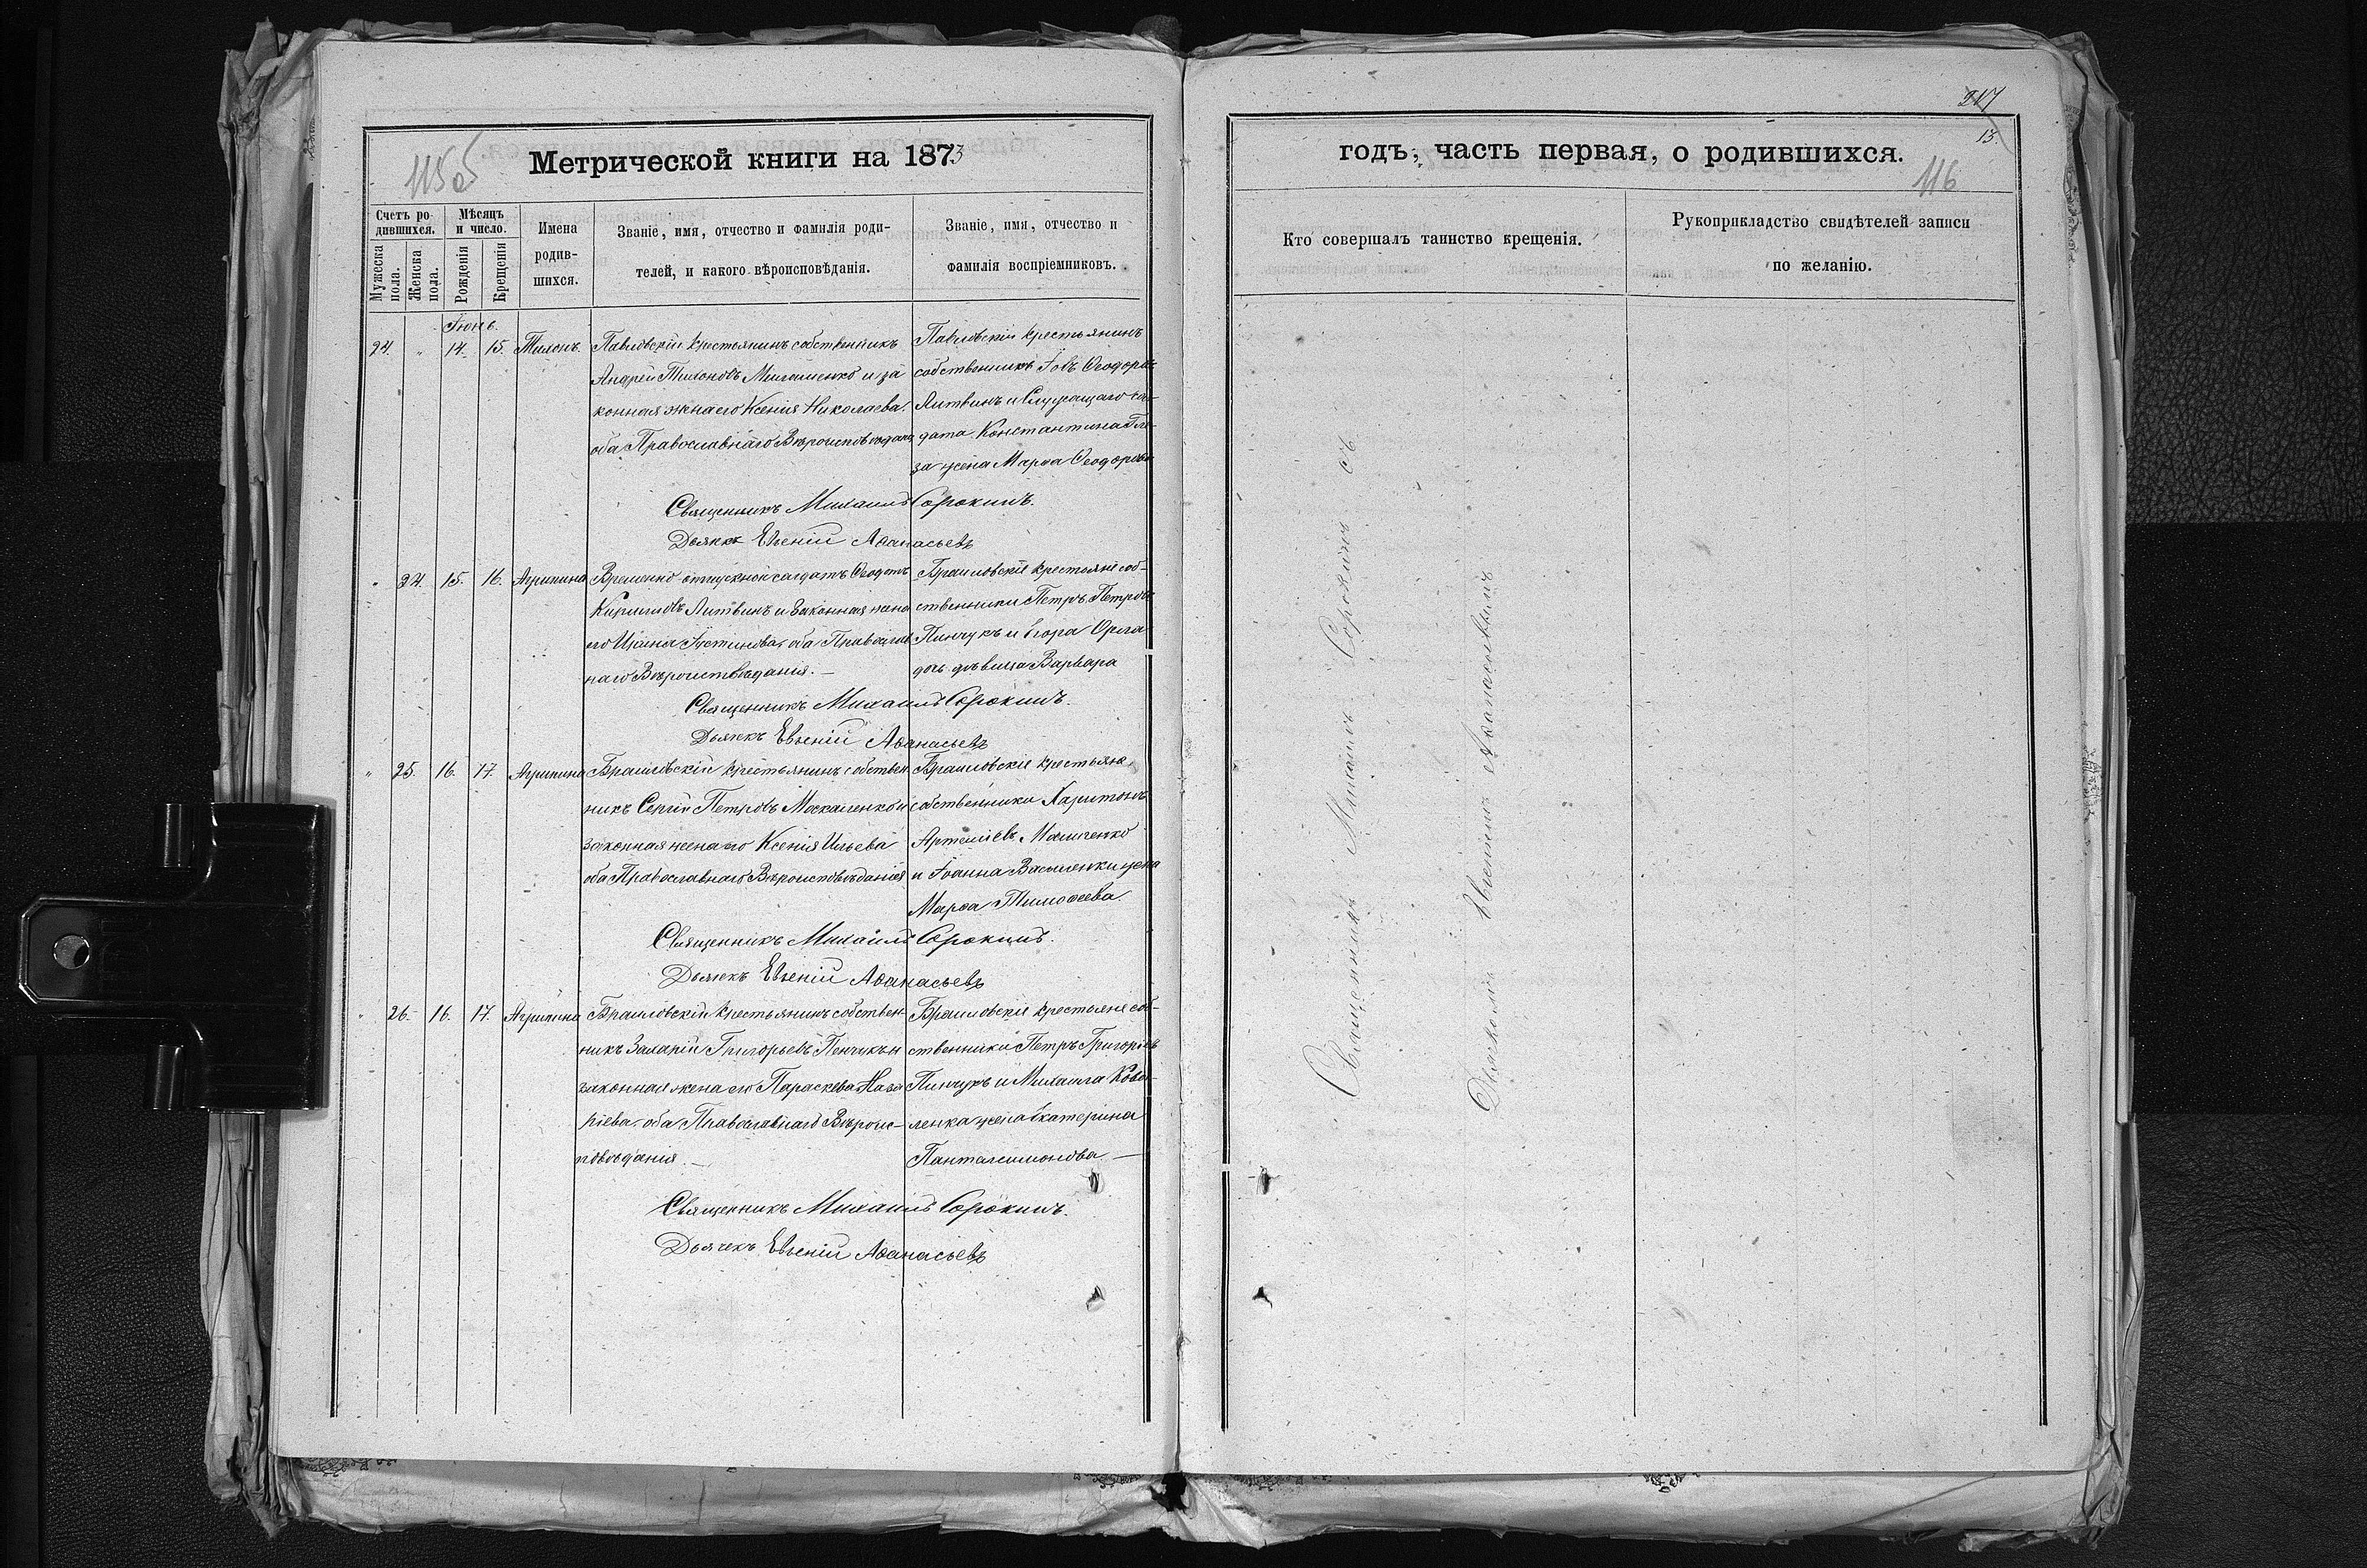 115об
Метрической книги на 1873
Счетъ родившихся.
Мѣсяцъ и число.
Мужеска пола.
Женска пола.
Рожденія
Крещенія
Имена родившихся.
Званіе, имя, отчество и фамилія родителей, и какого вѣроисповѣданія.
Званіе, имя, отчество и фамилія воспріемниковъ.
Іюнь.
24. " 14. 15. Тихонъ.
Павловскій крестьянинъ собственникъ
Андрей Тихоновъ и за
конная жена его Ксенія Николаева.
оба Православнаго Вѣроисповѣдан
Павловскій крестьянинъ
собственникъ Іовъ Ѳеодоро
Литвинъ и Служащаго сол-
дата Константина
за жена Марѳа Ѳеодорова
Священникъ Михаилъ Сорокинъ.
Дьячекъ Евгеній Аѳанасьевъ
" 24. 15. 16. Агрипина
Временно отпускной салдатъ Ѳеодотъ
Кириловъ Литвинъ и Законная жена
его Устинова, оба Православ
наго Вѣроисповѣданія. —
Браиловскіе крестьяне соб-
ственники Петръ Петровъ
Пинчукъ и Егора Орла
дочь дѣвица Варвара
Священникъ Михаилъ Сорокинъ.
Дьячекъ Евгеній Аѳанасьевъ
" 25. 16. 17. Агрипина
Браиловскій крестьянинъ собствен
никъ Сергій Петровъ Москаленко и
законная жена его Ксенія Ильева
оба Православнаго Вѣроисповѣданія
Браиловскіе крестьяне
собственники Харитонъ
Артеміевъ
и Іоанна Василенки жена
Марѳа Тимоѳеева.
Священникъ Михаилъ Сорокинъ.
Дьячекъ Евгеній Аѳанасьевъ
" 26. 16. 17. Агрипина
Браиловскій крестьянинъ собствен-
никъ Захарій Григорьевъ Пенчукъ и
законная жена его Параскева Наза
ріева, оба Православнаго Вѣроис-
повѣданія. —
Браиловскіе крестьяне соб-
ственники Петръ Григорьевъ
Пинчукъ и Михаила Кова-
ленка жена Екатерина
Панталеимонова —
Священникъ Михаилъ Сорокинъ.
Дьячекъ Евгеній Аѳанасьевъ
217
13.
116
годъ, часть первая, о родившихся.
Кто совершалъ таинство крещенія.
Рукоприкладство свидѣтелей записи по желанію.
Священникъ Михаилъ Сорокинъ съ
Дьячкомъ Евгеніемъ Аѳанасьевымъ